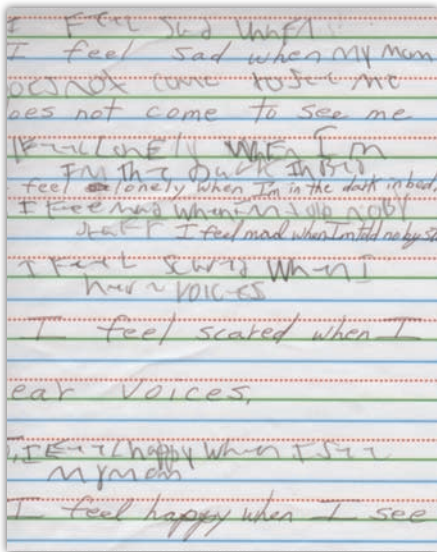 I Feel Sad When
I feel sad when my mom
Does not come to see me
oes not come to see me
I Feel Lonely WhEn I'm
In The Dark In Bed
feel lonely when I'm in the dark in bed,
I Feel mad when I'm told no By
staff I feel mad when I'm told no by st
I Feel Scared When I
hear voices
I feel scared when I
ear voices.
I Feel happy when I see
my mom
I feel happy when I see